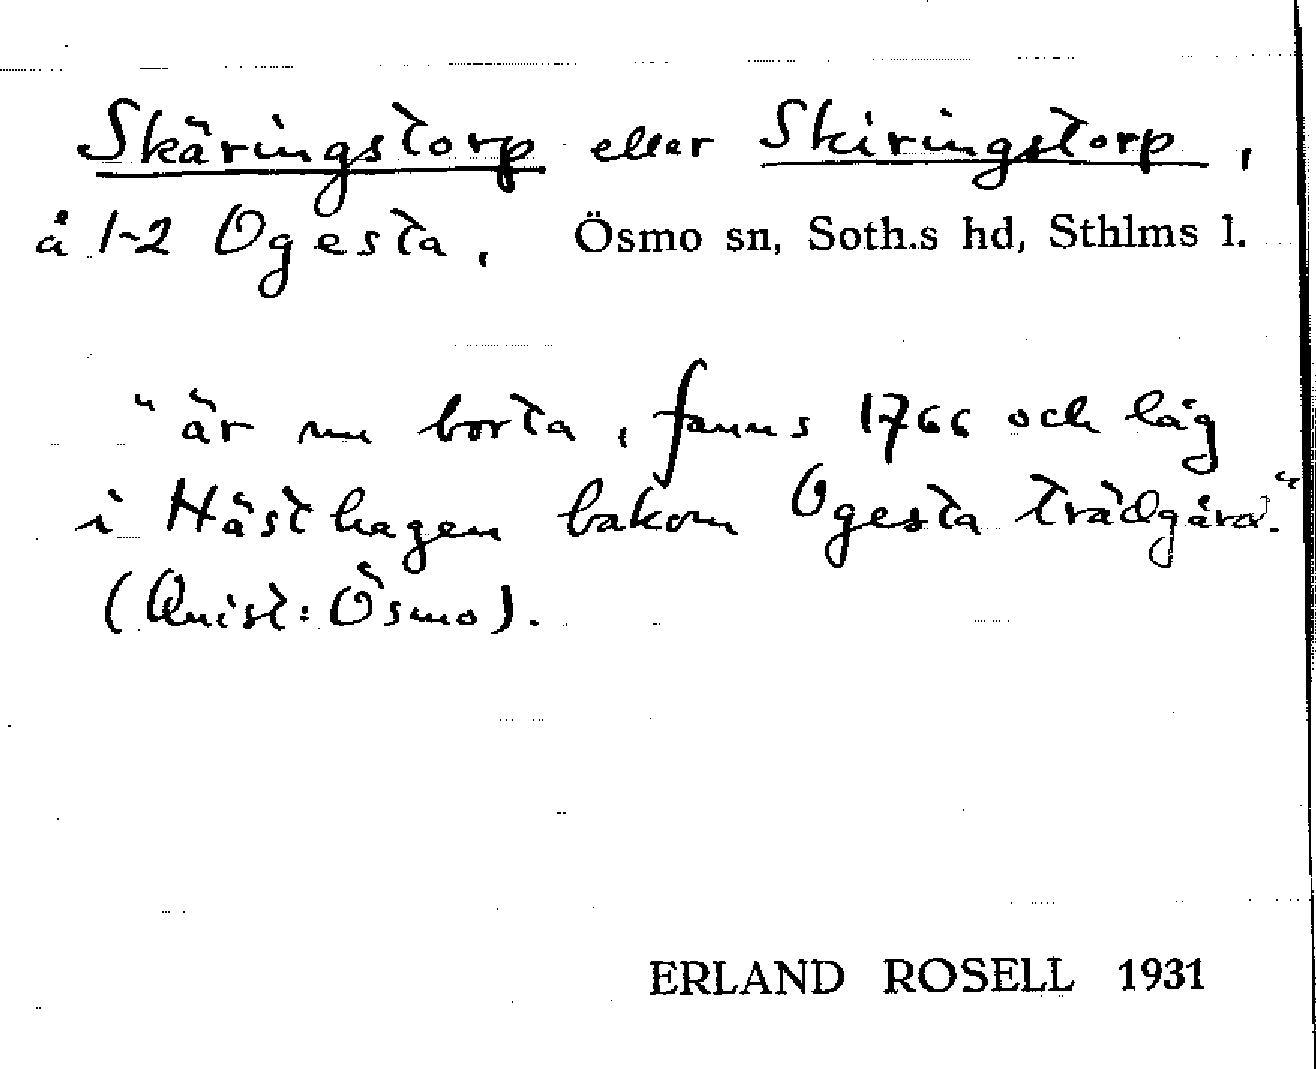 Skäringstorp eller Skiringstorp,
å 1-2 Ogesta, Ösmo sn, Soth.s hd, Sthlms l.
"är nu borta, fanns 1766 och låg
i Hästhagen bakom Ogesta trädgård."
(Quist: Ösmo).
ERLAND ROSELL 1931